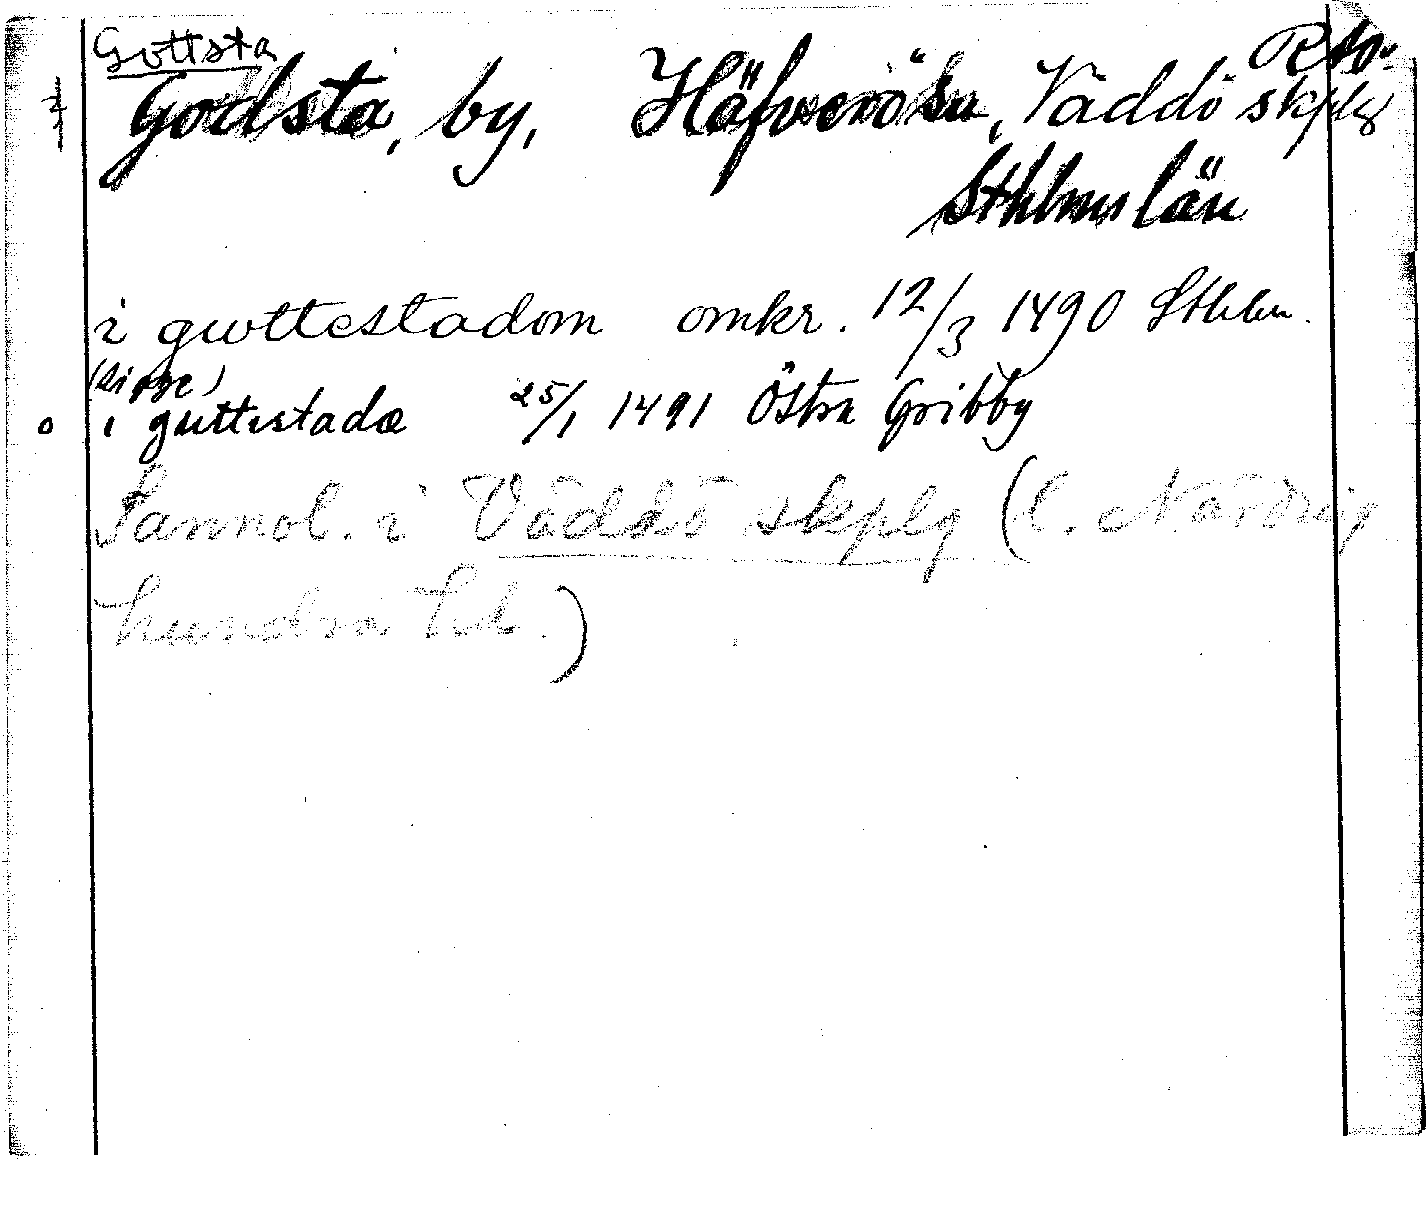 Gottsta
Godsta, by, Häfverösu, Väddö skplg
Sthlms län
i gwttestadom omkr. 12/3 1490 Sthlm.
i guttestada 25/1 1491 Östra Gribby
Sannol. i Väddö skplg (l. Närding
hundra hd.)